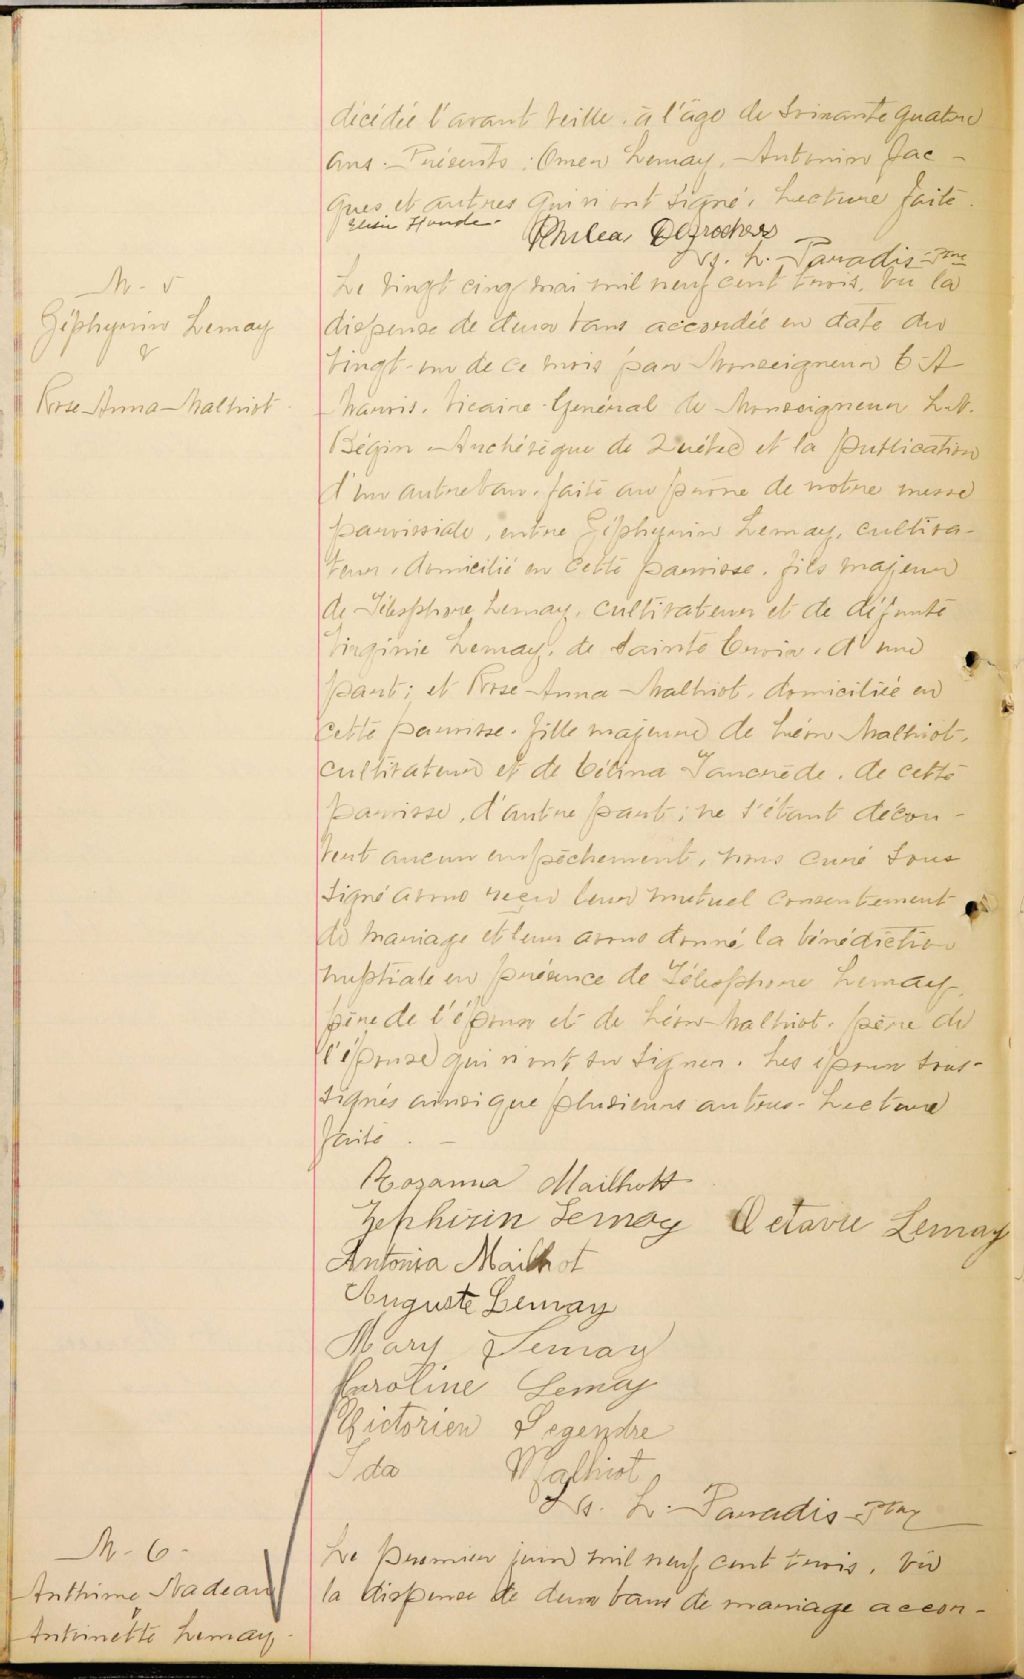 décédée l'avant veille, à l'âge de soixante quatre
ans. Présents : Omer Lemay, Antonin Jac-
ques et autres qui n'ont signé. Lecture faite.
Elisée Houde Philéas Desrochers
Ls. L. Paradis Ptre
M. 5
Zéphyrin Lemay
&
Rose-Anna Malhiot
Le vingt cinq mai mil neuf cent trois, vu la
dispense de deux bans accordée en date du
vingt-un de ce mois par Monseigneur C-A
Marois, Vicaire Général de Monseigneur L.N.
Bégin Archévêque de Québec et la publication
d'un autre ban, faite au prône de notre messe
paroissiale, entre Zéphyrin Lemay, cultiva-
teur, domicilié en cette paroisse, fils majeur
de Télesphore Lemay, cultivateur et de défunte
Virginie Lemay, de Sainte Croix, d'une
part; et Rose-Anna Malhiot, domiciliée en
cette paroisse, fille majeure de Léon Malhiot,
cultivateur et de Célina Tancrède, de cette
paroisse, d'autre part; ne s'étant décou-
vert aucun empêchement, nous curé sous
signé avons reçu leur mutuel consentement
de mariage et leur avons donné la bénédiction
nuptiale en présence de Télesphore Lemay,
père de l'époux et de Léon Malhiot, père de
l'épouse qui n'ont su signer. Les époux sous-
signés ainsi que plusieurs autres. Lecture
faite. -
Rozanna Mailhott
Zephirin Lemay Octavie Lemay
Antonia Mailhot
Auguste Lemay
Mary Lemay
Caroline Lemay
Victorien Legendre
Ida Malhiot
Ls. L. Paradis Ptre
M. 6.
Anthime Nadeau
&
Antoinette Lemay.
Le premier juin mil neuf cent trois, vu
la dispense de deux bans de mariage accor-